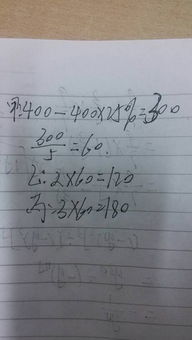 400-400×25%=300
300/5=60.
乙:2×60=120
丙:3×60=180